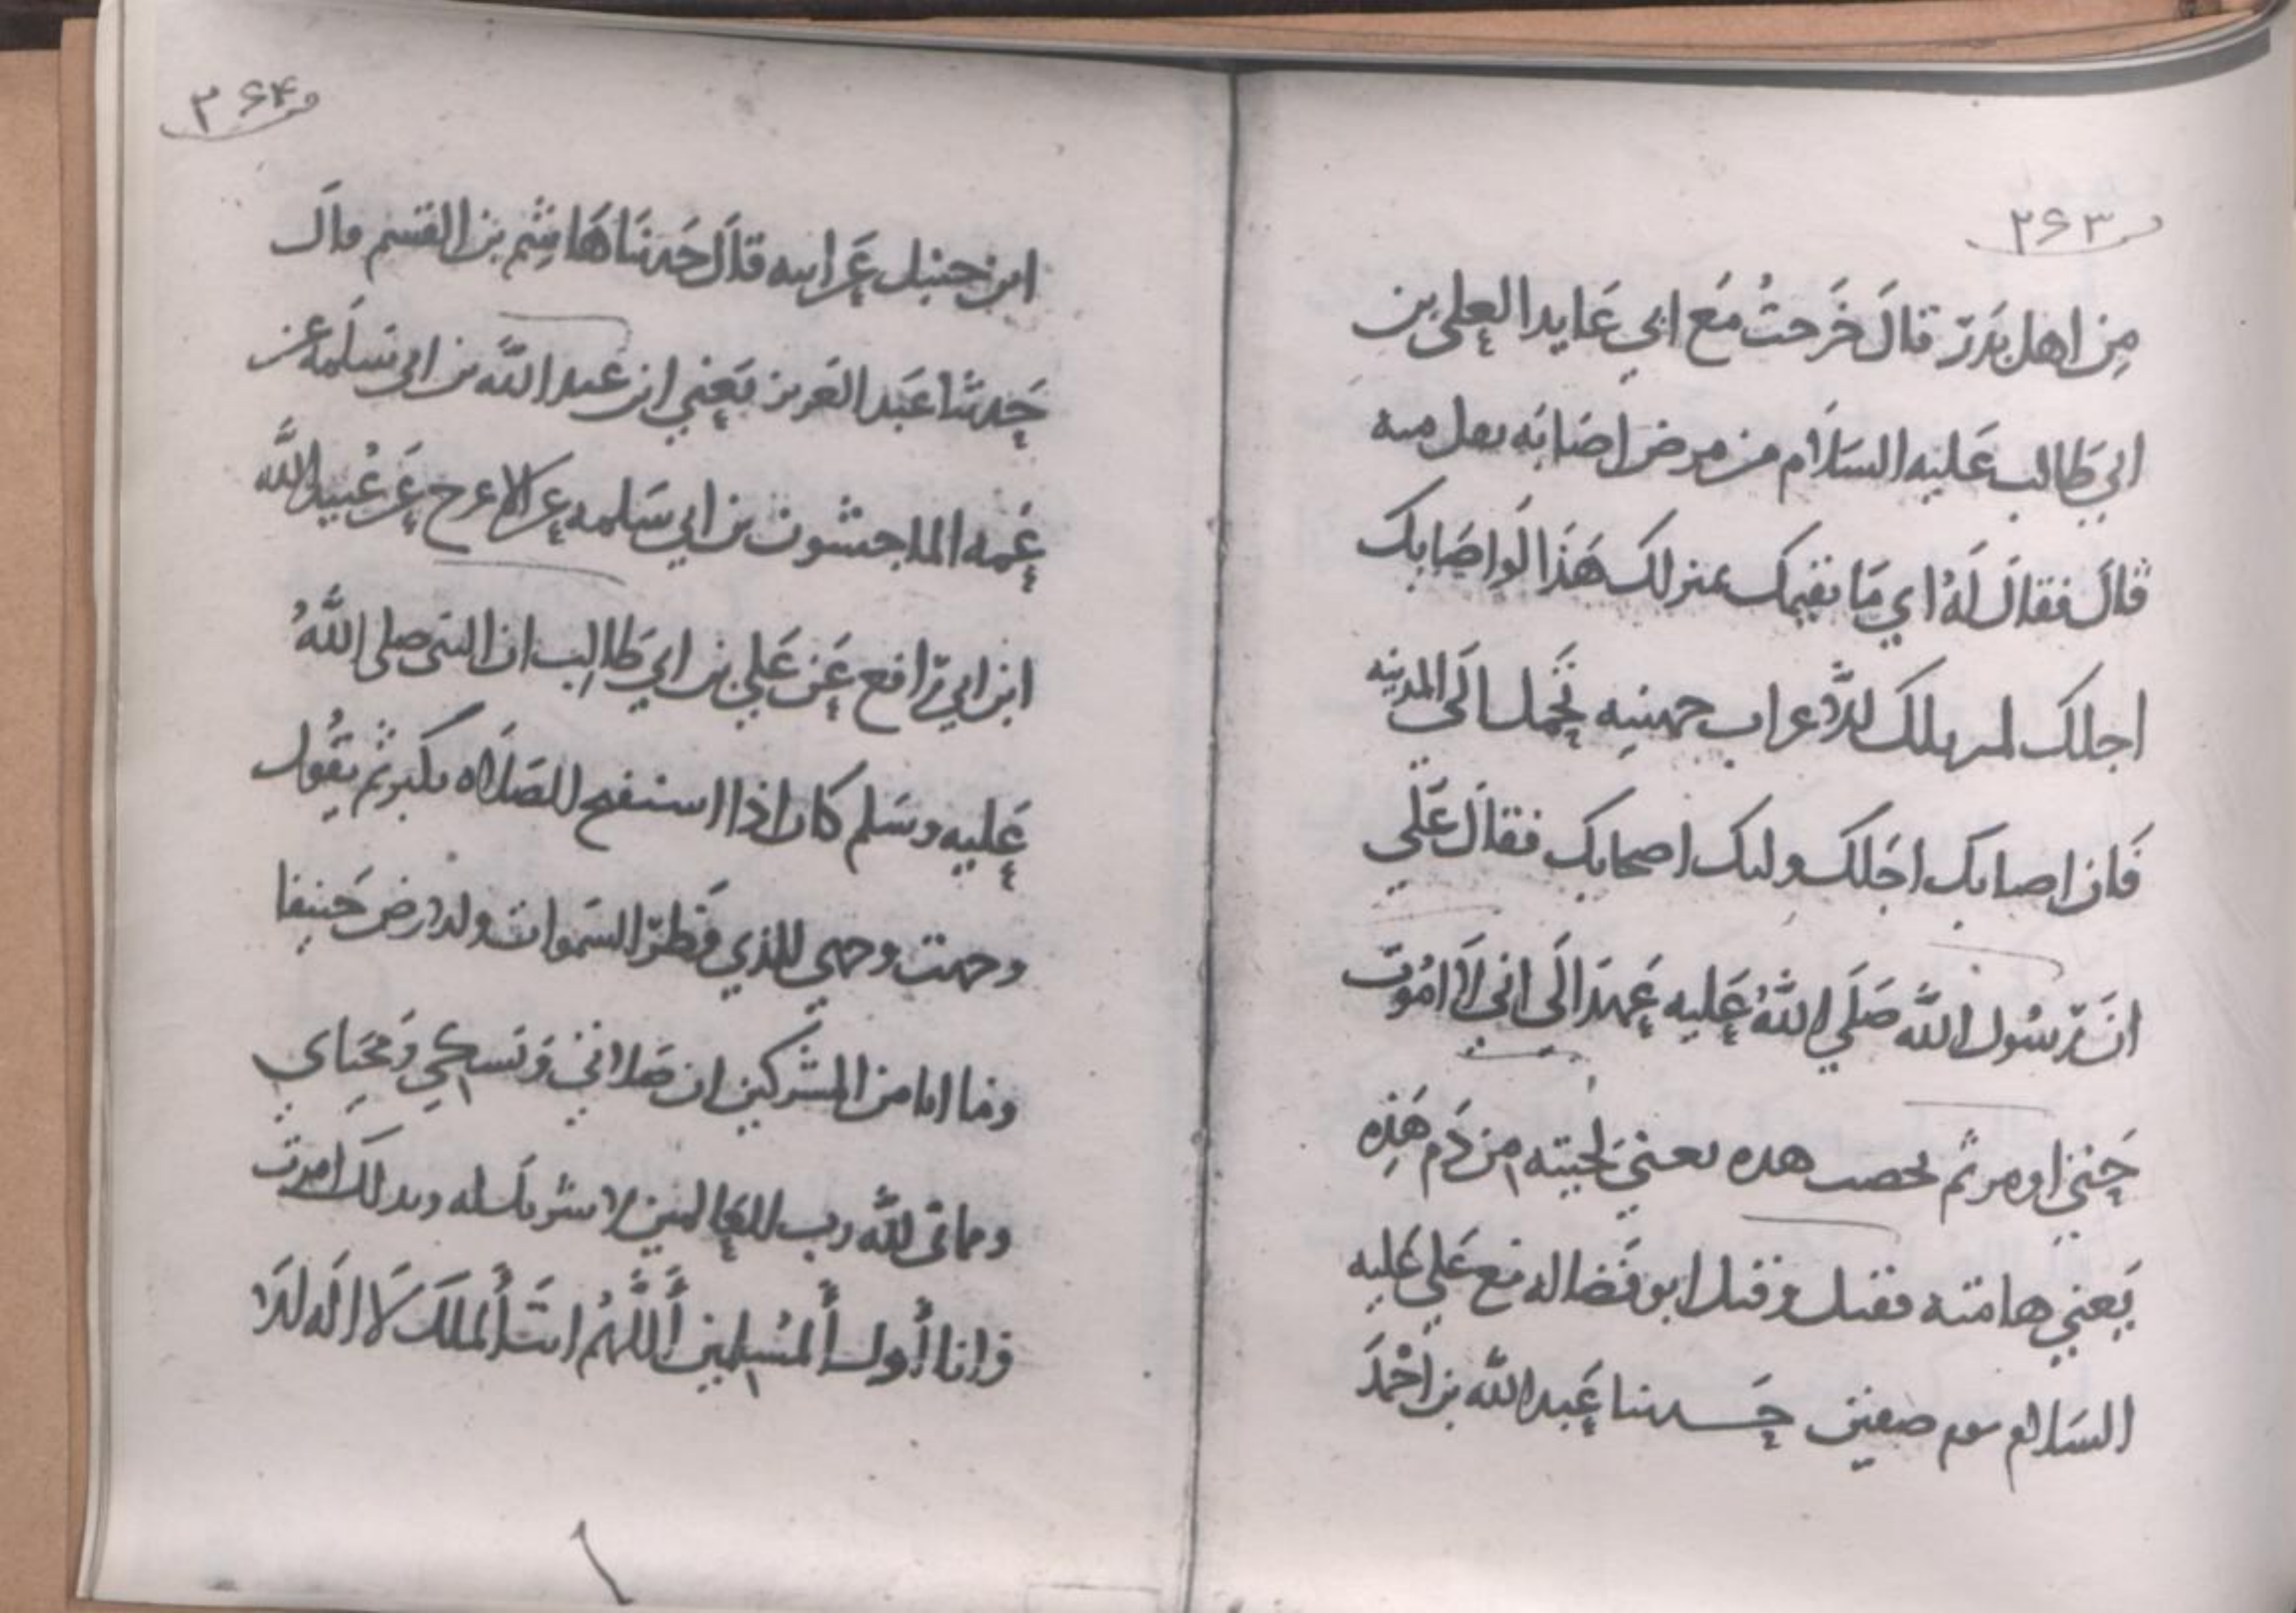 ۲۶۳
من اهل بدر قال خرجت مع ابي عايدا لعلي بن
ابي طالب عليه السلام من مرض اصابه ثقل منه
قال فقال له ابي ما يقيمك بمنزلك هذا لو اصابك
اجلك لم يلك الا اعراب جهينه تحمل الى المدينه
فان اصابك اجلك وليك اصحابك فقال علي
ان رسول الله صلي الله عليه عهد الى اني لا اموت
حتي اومر ثم تخضب هذه يعني لحيته من دم هذه
يعني هامته فقتل وقتل ابو فضاله مع علي عليه
السلام يوم صفين حدثنا عبد الله بن احمد
۳۶۴
ابن حنبل عن ابيه قال حدثنا هاشم بن القسم قال
حدثنا عبد العزيز يعني ابن عبد الله بن ابي سلمه عن
عمه الماجشون بن ابي سلمه عن الاعرج عن عبيد الله
ابن ابي رافع عن علي بن ابي طالب ان النبي صلى الله
عليه وسلم كان اذا استفتح الصلاه يكبر ثم يقول
وجهت وجهي للذي فطر السموات والارض حنيفا
وما انا من المشركين ان صلاتي ونسكي ومحياي
ومماتي لله رب العالمين لا شريك له وبذلك امرت
وانا أول ألمسلمين أللهم انت ألملك لا اله الا